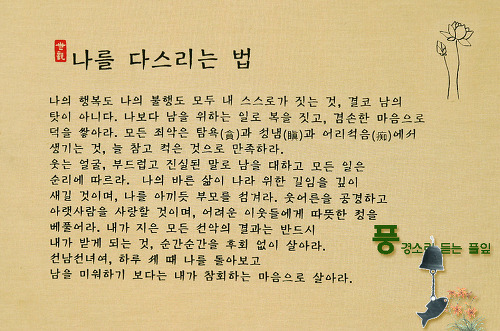 世觀
나를 다스리는 법
나의 행복도 나의 불행도 모두 내 스스로가 짓는 것, 결코 남의
탓이 아니다. 나보다 남을 위하는 일로 복을 짓고, 겸손한 마음으로
덕을 쌓아라. 모든 죄악은 탐욕(貪)과 성냄(瞋)과 어리석음(痴)에서
생기는 것, 늘 참고 적은 것으로 만족하라.
웃는 얼굴, 부드럽고 진실된 말로 남을 대하고 모든 일은
순리에 따르라. 나의 바른 삶이 나라 위한 길임을 깊이
새길 것이며, 나를 아끼듯 부모를 섬겨라. 웃어른을 공경하고
아랫사람을 사랑할 것이며, 어려운 이웃들에게 따뜻한 정을
베풀어라. 내가 지은 모든 선악의 결과는 반드시
내가 받게 되는 것, 순간순간을 후회 없이 살아라.
선남선녀여, 하루 세 때 나를 돌아보고
남을 미워하기 보다는 내가 참회하는 마음으로 살아라.
풍경소리 듣는 풀잎